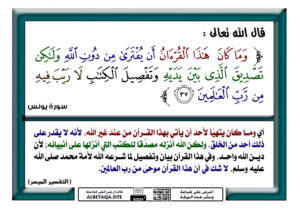 قال الله تعالى :
﴿ وَمَا كَانَ هَٰذَا الْقُرْءَانُ أَن يُفْتَرَىٰ مِن دُونِ اللَّهِ وَلَٰكِن
تَصْدِيقَ الَّذِى بَيْنَ يَدَيْهِ وَتَفْصِيلَ الْكِتَٰبِ لَا رَيْبَ فِيهِ
مِن رَّبِّ الْعَٰلَمِينَ ۝٣٧ ﴾
سورة يونس
أي وما كان يتهيَّأ لأحد أن يأتي بهذا القرآن من عند غير الله، لأنه لا يقدر على
ذلك أحد من الخلق، ولكن الله أنزله مصدِّقا للكتب التي أنزلها على أنبيائه؛ لأن
دين الله واحد، وفي هذا القرآن بيان وتفصيل لما شرعه الله لأمة محمد صلى الله
عليه وسلم، لا شك في أن هذا القرآن موحى من رب العالمين.
(التفسير الميسر)
ALBETAQA.SITE
احرص على طباعة
ونشر هذه الورقة